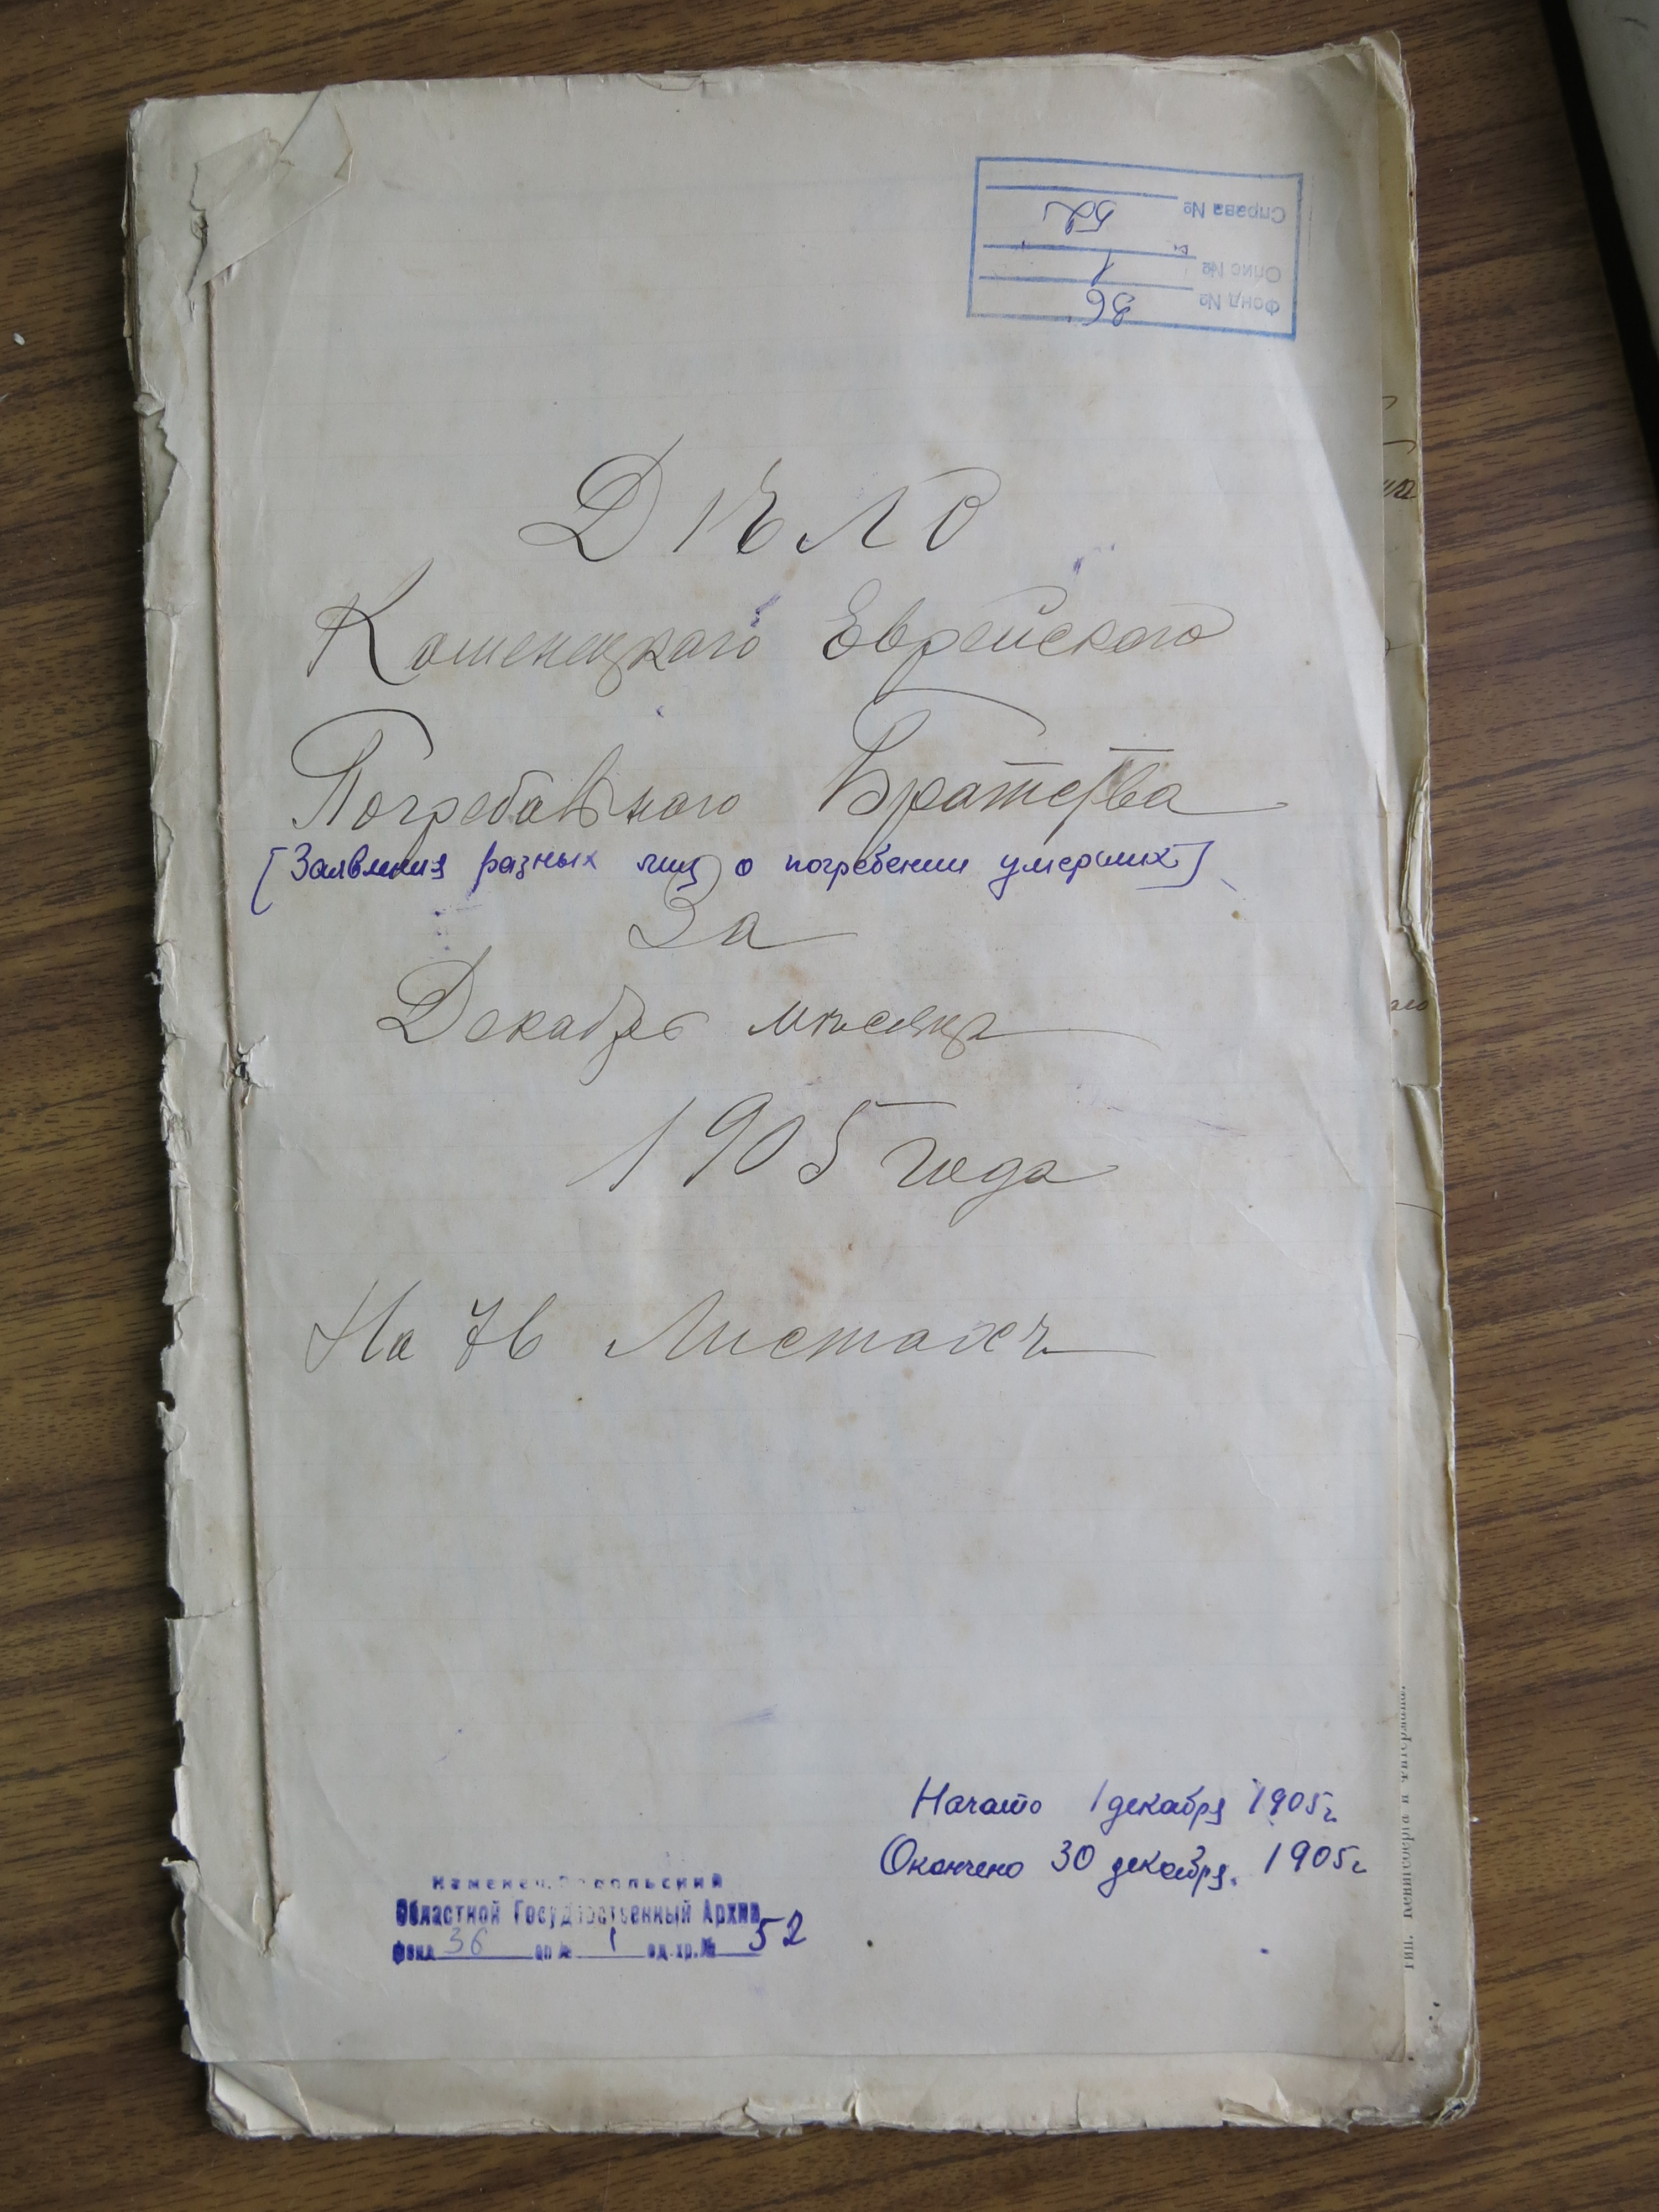 Справа № 52
Опис № 1
Фонд № 36
Дѣло
Каменецкаго Еврейскаго
Погребальнаго Братства
[Заявления разных лиц о погребении умерших]
За
Декабрь мѣсяцъ
1905 года
На 76 Листахъ
Начато 1 декабря 1905 г.
Окончено 30 декабря. 1905 г.
Каменец-Подольский
Областной Государственный Архив
фонд 36 оп № 1 ед. хр. № 52